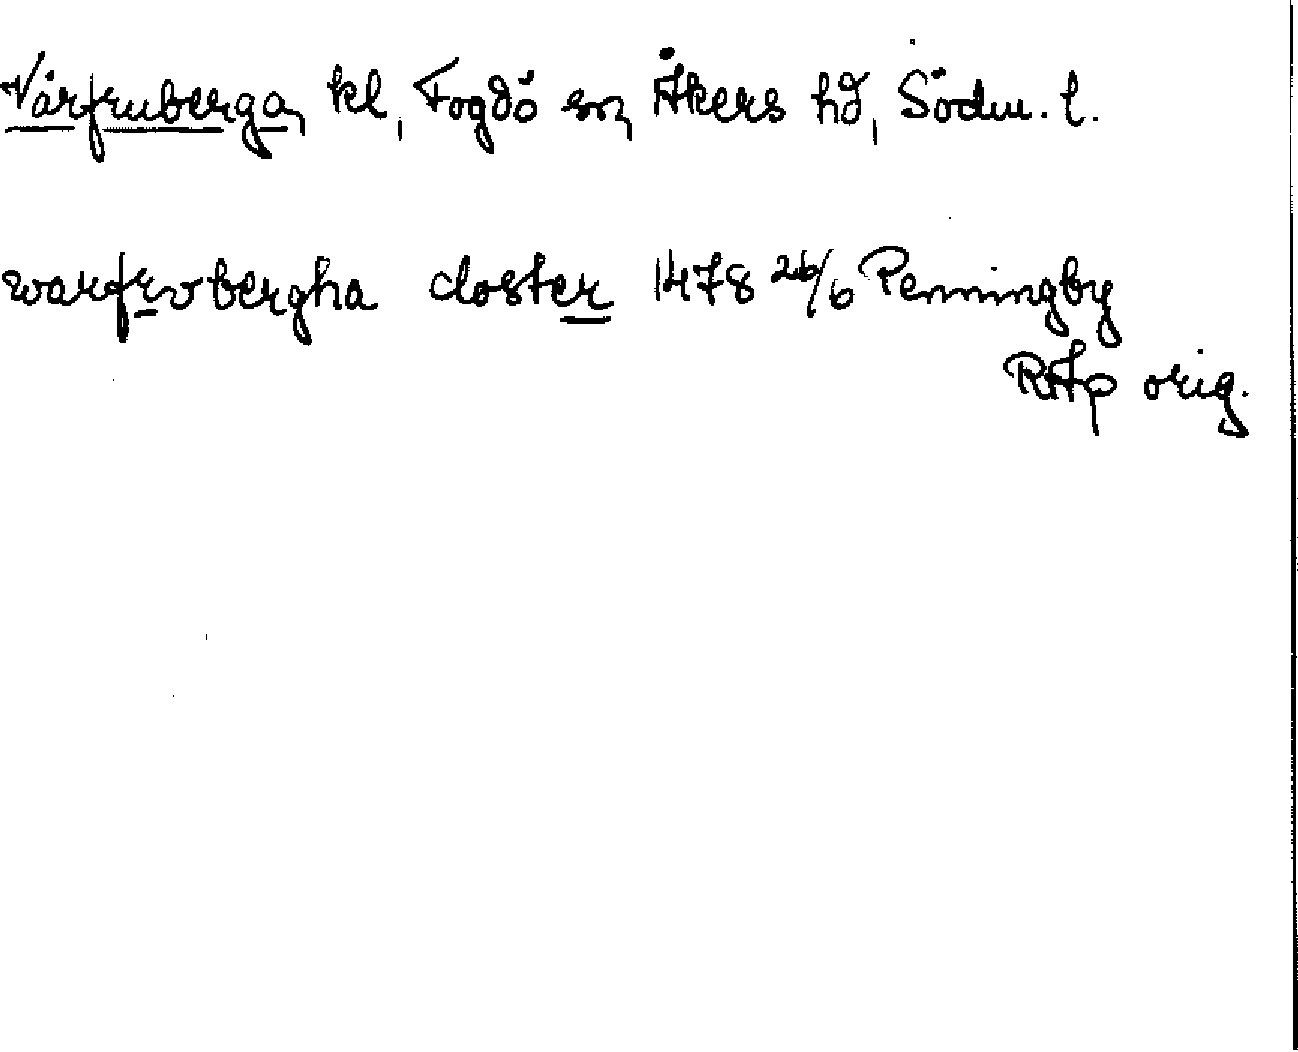 Vårfruberga, kl, Fogdö sn, Åkers hd, Södm. l.
warfrvbergha closter 1478 26/6 Penningby
RAp orig.